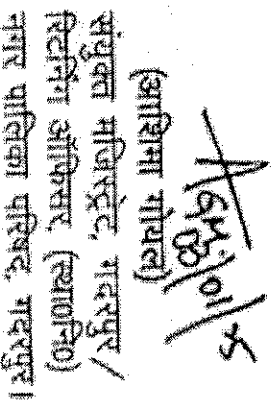 (आशिमा गोयल)
संयुक्त मजिस्ट्रेट, गदरपुर/
रिटर्निंग ऑफिसर, (स्था0नि0)
नगर पालिका परिषद, गदरपुर।